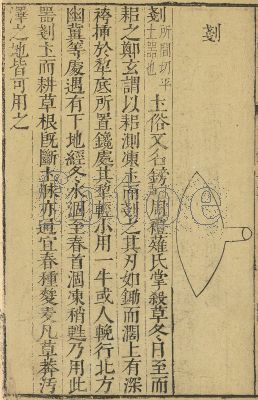 剗
剗所間切平土器也土俗又名鎊周禮薙氏掌殺草冬日至而
耜之鄭玄謂以耜測凍土而剗之其刃如鋤而濶上有深
袴插於犂底所置鑱處其犂輕小用一牛或人輓行北方
幽冀等處遇有下地經冬水涸至春首涸凍稍甦乃用此
器剗土而耕草根旣斷土脉亦通宜春種麰麥凡草莽汚
澤之地皆可用之